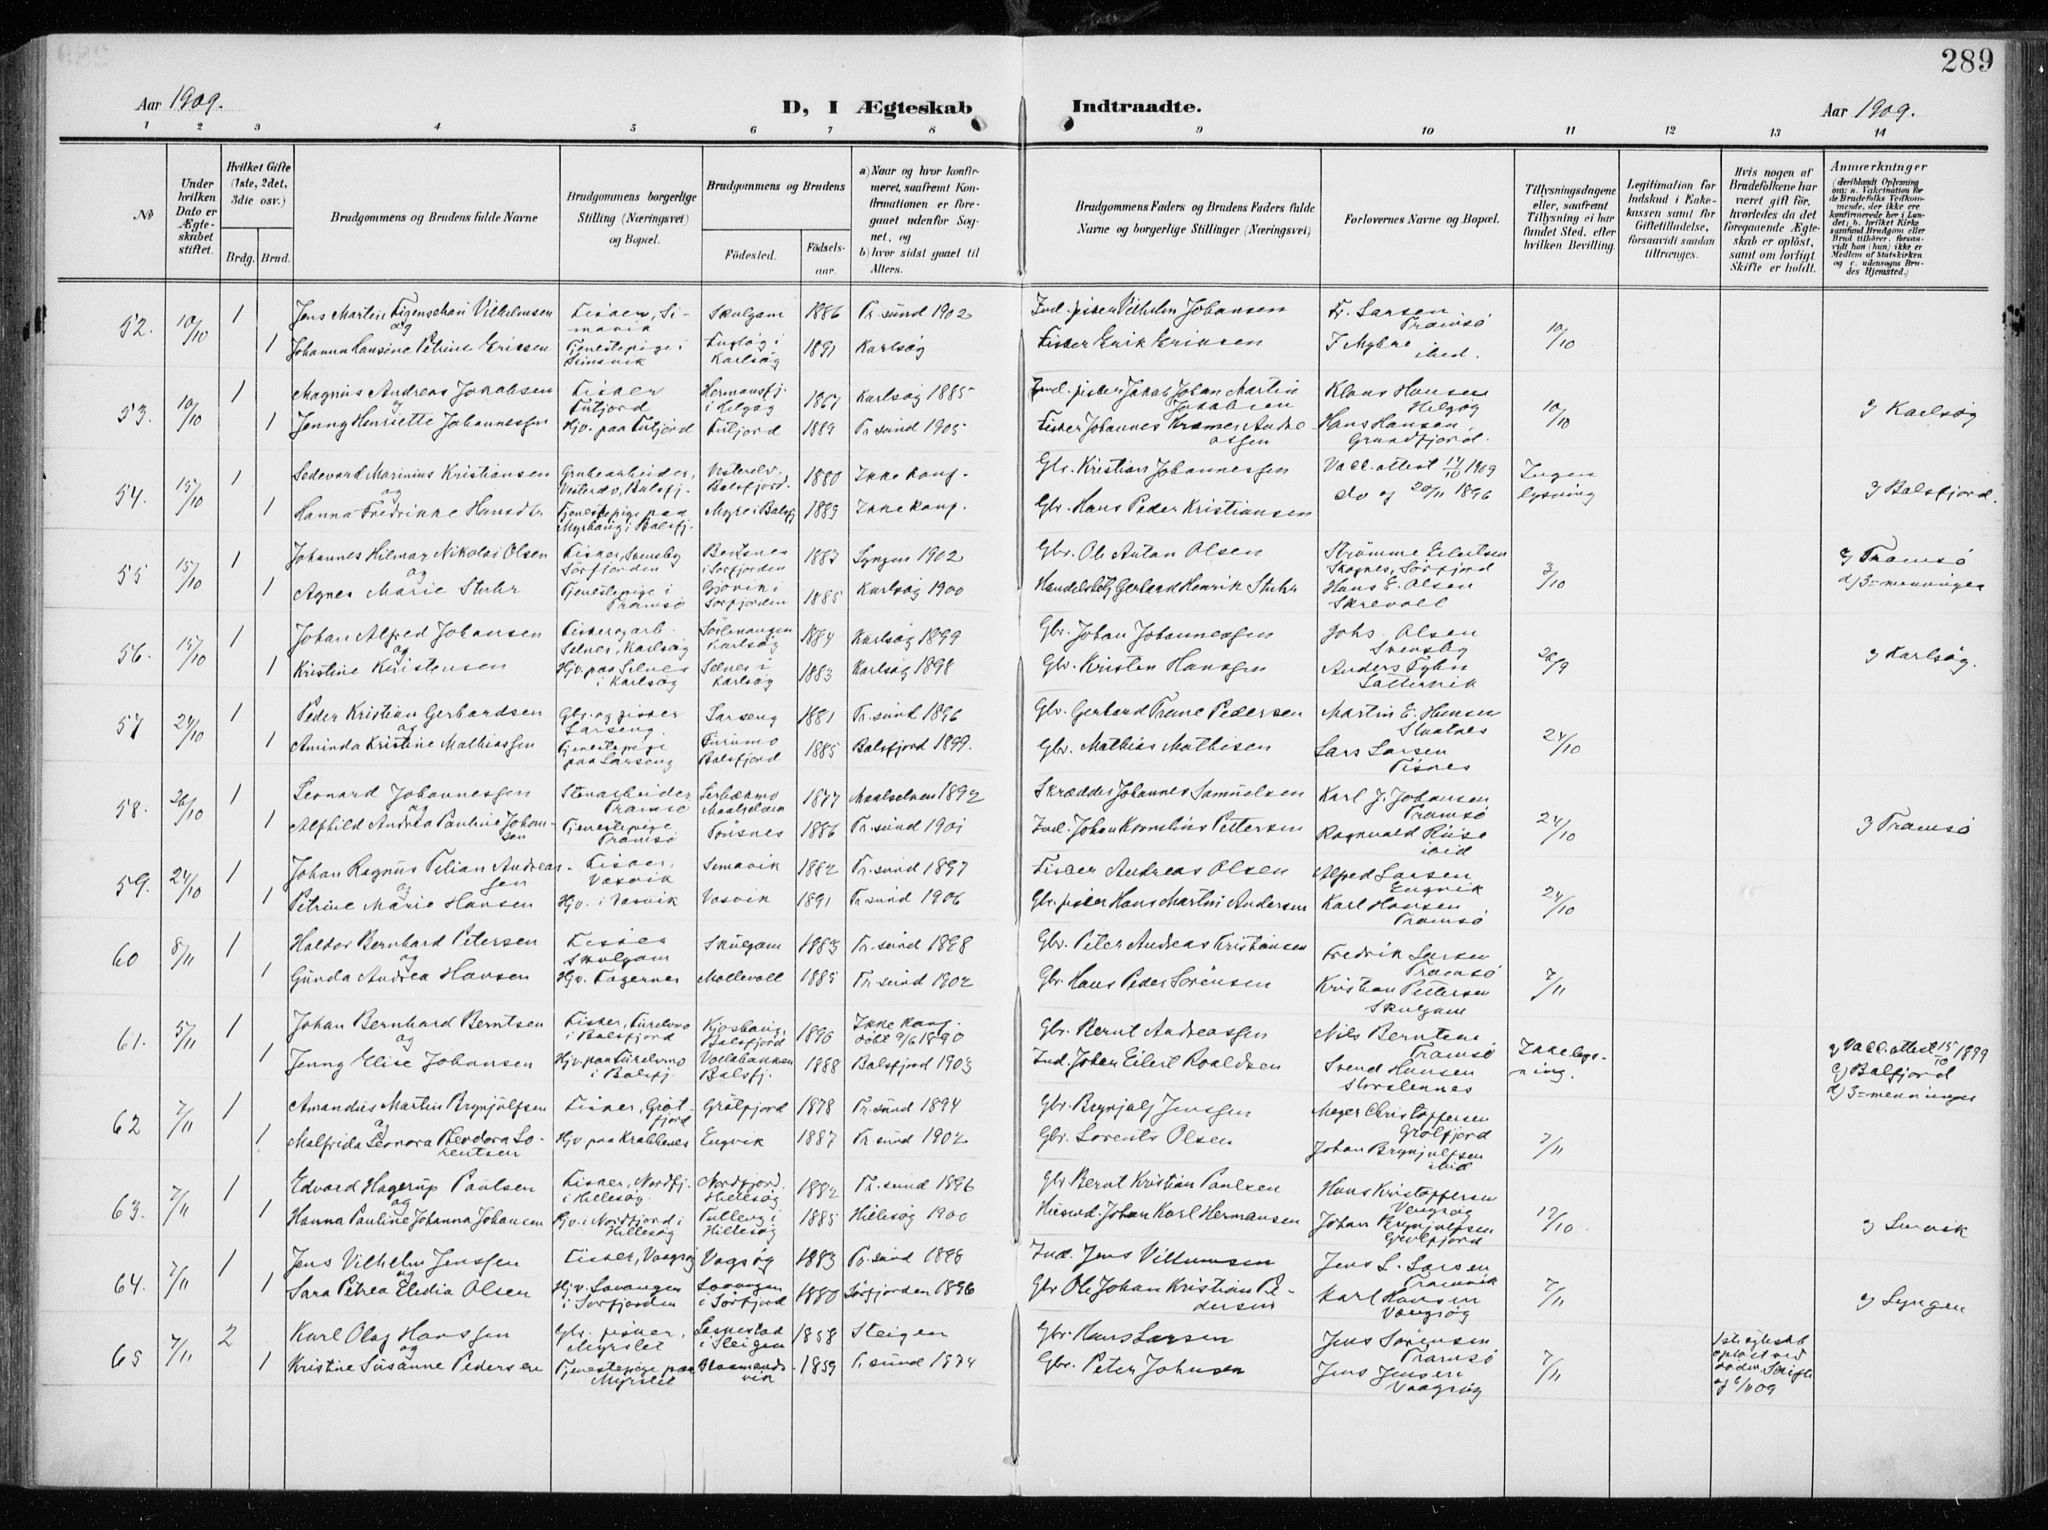 289
Aar 1909.
D, I Ægteskab Indtraadte.
Aar 1909.
1 2 3 4 5 6 7 8 9 10 11 12 13 14
No
Under hvilken Dato er Ægteskabet stiftet.
Hvilket Gifte (1ste, 2det, 3die osv.)
Brdg. Brud.
Brudgommens og Brudens fulde Navne
Brudgommens borgerlige Stilling (Næringsvei) og Bopæl.
Brudgommens og Brudens
Födested. Födselsaar.
a) Naar og hvor konfirmeret, saafremt Konfirmationen er foregaaet udenfor Sognet, og
b) hvor sidst gaaet til Alters.
Brudgommens Faders og Brudens Faders fulde Navne og borgerlige Stillinger (Næringsvei)
Forlovernes Navne og Bopæl.
Tillysningsdagene eller, saafremt Tillysning ei har fundet Sted, efter hvilken Bevilling.
Legitimation for Indskud i Enkekassen samt for Giftetilladelse, forsaavidt saadan tiltrænges.
Hvis nogen af Brudefolkene har været gift før, hvorledes da det foregaaende Ægteskab er oplöst, samt om lovligt Skifte er holdt.
Anmærkninger
52. 10/10 1 Jens Martin Vilhelmsen Fisker, Simavik Skulgam 1886 Tr.sund 1902 Ind. fisker Vilhelm Johansen Fr. Larsen Tromsö
og
1 Johanna Hansine Petrine Eriksen Tjenestepige i Karlsög 1891 Karlsög Fisker Erik Eriksen J Myhre ibid. 10/10
53. 10/10 1 Magnus Andreas Jakobsen Fisker Futfjord Hermansfj. i Helgög 1867 Karlsög 1885 Ind. fisker Jakob Johan Martin Jakobsen Klaus Hansen Helgög
1 Jenny Henriette Johannessen Hjv. paa Futfjord Futfjord 1889 Tr.sund 1905 Fisker Johannes Kramer Andreassen Hans Hansen, Grundfjord. 10/10 c) Karlsög
54. 15/10 1 Sedevard Marinius Kristiansen Grubearbeider, Vesterelv, Balsfj. Vesterelv. Balsfjord. 1880 Ikke konf. Gbr. Kristian Johannessen Vacc.attest 14/10 1909 Ingen lysning
og
1 Hanna Fredrikke Hansdtr Tjenestepige paa Myrbaug i Balsfj. Myre i Balsfj 1889 Ikke konf. Gbr. Hans Peder Kristiansen do og 20/11 1896 c) Balsfjord.
55 15/10 1 Johannes Hilmar Nikolai Olsen Fisker, Sörfjorden Bentsnes i Sörfjorden 1883 Lyngen 1902 Gbr. Ole Antan Olsen Strömme Eilertsen Skognes, Sörfjord
og
1 Agnes Marie Stuhr Tjenestepige i Tromsö Gjövik i Sörfjorden 1885 Karlsög 1900 Gerhard Henrik Stuhr Hans E. Olsen 3/10 c) Tromsö
d) 3=menninger
56. 15/10 1 Johan Alfred Johansen Fisker og arb. Selnes, Karlsög Karlsög 1884 Karlsög 1899 Gbr. Johan Johannessen Johs. Olsen Svensby
og
1 Kristine Kristensen Hjv. paa Selnes i Karlsög Selnes i Karlsög 1883 Karlsög 1898 Gbr. Kristen Hansen Anders 26/9 c) Karlsög.
57 24/10 1 Peder Kristian Gerhardsen Gbr. og fisker Larseng. Larseng 1881 Tr.sund 1896 Gbr. Gerhard Trane Pedersen Martin E. Hansen
og
1 Aminda Kristine Mathiassen Tjenestepige paa Larseng Furumo Balsfjord 1885 Balsfjord 1899. Gbr. Mathias Mathisen Lars Larsen Tisnes 24/10
58. 26/10 1 Leonard Johannessen Stenarbeider Tromsö Maalselven 1877 Maalselven 1892 Skrædder Johannes Samuelsen Karl J. Johansen Tromsö
og
1 Alfhild Andrea Pauline Johansen Tjenestepige Tromsö Tönsnes 1886 Tr.sund 1901 Ind. Johan Kornelius Pettersen Ragnvald Riise ibid 24/10 c) Tromsö
59. 24/10 1 Johan Ragnus Tilian Andreassen Fisker, Vasvik Simavik 1882 Tr.sund 1897 Fisker Andreas Olsen Alfred Larsen Engvik
og
1 Petrine Marie Hansen Hjv. i Vasvik Vasvik 1891 Tr.sund 1906 Gbr. fisker Hans Martin Andersen Karl Hansen Tromsö 24/10
60 8/11 1 Haldor Bernhard Petersen Fisker Skulgam Skulgam 1883 Tr.sund 1898 Gbr. Peter Andreas Kristiansen Fredrik Larsen Tromsö
og
1 Gunda Andrea Hansen Hjv. Fagernes Mollevoll 1885 Tr.sund 1902 Gbr. Hans Peder Sörensen Kristian Pettersen Skulgam 7/11
61. 5/11 1 Johan Bernhard Berntsen Fisker, Furelvmo i Balsfjord Balsfjord 1890 Ikke konf. döbt 9/6 1890 Gbr. Bernt Andreassen Nils Berntsen Tromsö
og
1 Jenny Elise Johansen Hjv. paa Furelvmo i Balsfj. Balsfj. 1888 Balsfjord 1903 Ind. Johan Eilert Roaldsen Svend Hansen Storslennes Ikke lysning. a) Vacc.attest 15/10 1899
c) Balsfjord
d) 3=menninger
62 7/11 1 Amandus Martin Brynjulfsen Fisker, Grötfjord Grötfjord 1878 Tr.sund 1894 Gbr. Brynjulf Jenssen Meyer Christoffersen Grötfjord
og
1 Malfrida Leonora Theodora Lorentsen Hjv. paa Krabbenes Engvik 1887 Tr.sund 1902 Gbr. Lorents Olsen Johan Brynjulfsen ibid 7/11
63. 7/11 1 Edvard Hagerup Paulsen Fisker, Nordfj. i Hillesög. Nordfjord. Hillesög 1882 Tr.sund 1896 Gbr Bernt Kristian Paulsen Hans Kristoffersen Vengsög
og
1 Hanna Pauline Johanna Johansen Hjv. i Nordfjord i Hillesög Tulleng i Hillesög 1885 Hillesög 1900 Johan Karl Hermansen Johan Brynjulfsen Grötfjord 17/10
64. 7/11 1 Jens Vilhelm Jenssen Fisker, Vagsög Vagsög 1883 Tr.sund 1898 Ind. Jens Villumsen Jens L. Larsen Tromvik
og
1 Sara Petrea Elidia Olsen Hjv. Lavangen i Sörfjorden Lavangen i Sörfjord 1880 Sörfjorden 1896 Gbr. Ole Johan Kristian Pedersen Karl Hansen Vengsög 7/11 c) Lyngen
65 7/11 2 Karl Olag Hanssen Gbr. fisker, Myrslet i Steigen 1858 Steigen Gbr. Hans Larsen Jens Sörensen Tromsö
og
1 Kristine Susanne Pedersen Tjenestepige paa Myrslet 1859 Tr.sund 1874 Gbr. Peter Johnsen Jens Jensen Vaagsög 7/11 1ste egteskab oplöst ved Skifte